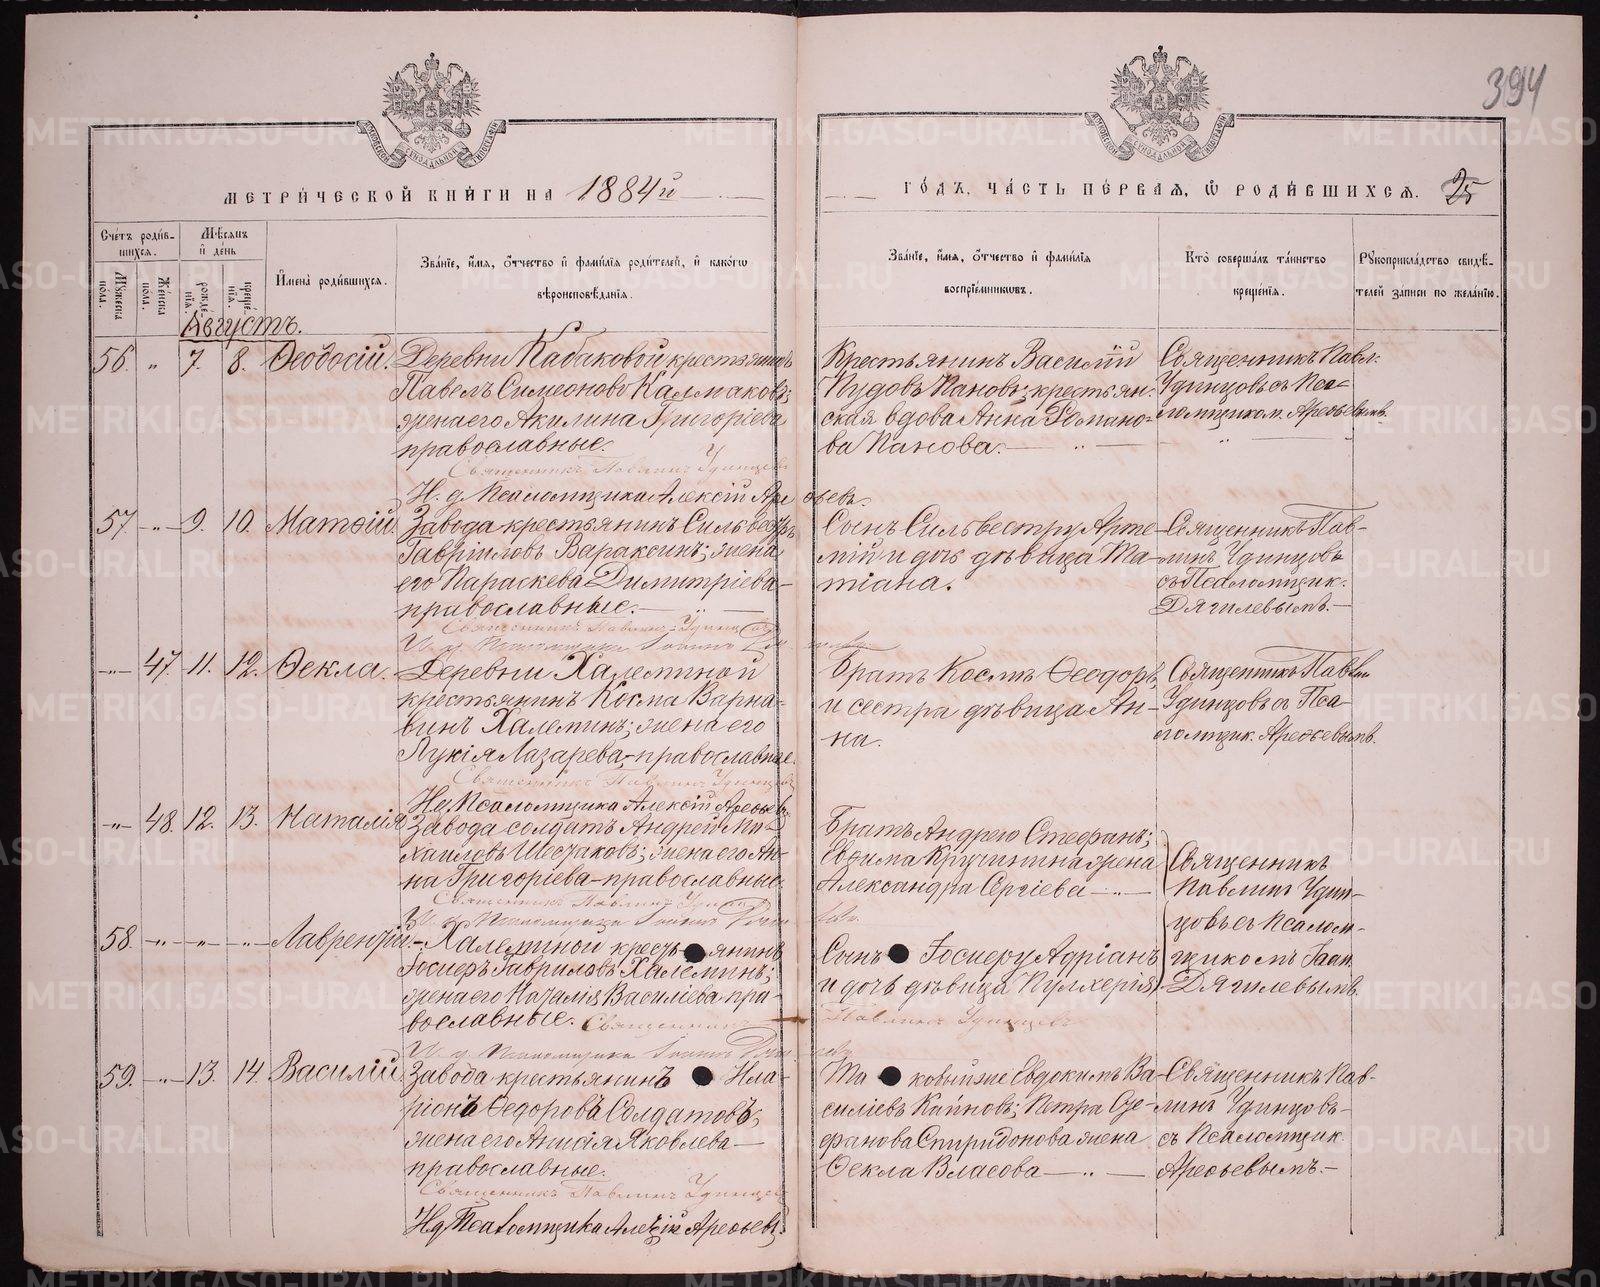 394
МЕТРИ́ЧЕСКОЙ КНИ́ГИ НА 1884й
ГО́ДЪ, ЧА́СТЬ ПЕ́РВАЯ, Ѽ РОДИ́ВШИХСЯ. 25
Сче́тъ роди́в-
шихся.
Му́жеска пола.
Же́нска пола.
Мѣ́сяцъ
и̂ де́нь
рожде́нїя.
креще́нїя.
И̂мена̀ роди́вшихся.
Зва́нїе, и̂́мя, ѻ̂́тчество и̂ фами́лїя роди́телей, и̂ како́гѡ
вѣроисповѣ́данїя.
Зва́нїе, и̂́мя, ѻ̂́тчество и̂ фами́лїя
воспрїе́мникѡвъ.
Кто̀ соверша́лъ та́инство
креще́нїя.
Рꙋкоприкла́дство свидѣ́-
телей за́писи по жела́нїю.
Августъ.
56. „ 7. 8. Ѳеодосій.
Деревни Кабаковой крестьянинъ
Павелъ Симеоновъ Калмаковъ;
жена его Акилина Григоріева
православные.
Священникъ Павлинъ Удинцевъ
И. д. Псаломщика Алексій Арефьевъ.
Крестьянинъ Василій
Пудовъ Пановъ; крестьян-
ская вдова Анна Романо-
ва Панова.
Священникъ Павл.
Удинцовъ съ Пса-
ломщиком. Арефьевымъ.
57. „ 9. 10. Матѳій.
Завода крестьянинъ Сильвестръ
Гавріиловъ Вараксинъ; жена
его Параскева Димитріева
православные.
Священникъ Павлинъ Удинцовъ
И. д. Псаломщика Іоаннъ Дягилевъ
Сынъ Сильвестру Арте-
мій и дочь дѣвица Та-
тіана.
Священникъ Пав-
линъ Удинцовъ
съ Псаломщик.
Дягилевымъ.
„ 47. 11. 12. Ѳекла.
Деревни Халеминой
крестьянинъ Косма Варна-
винъ Халеминъ; жена его
Лукія Лазарева, православные.
Священникъ Павлинъ Удинцевъ
Ид. Псаломщика Алексій Арефьевъ
Братъ Космѣ Ѳеодоръ,
и сестра дѣвица Ан-
на.
Священникъ Павлин
Удинцовъ съ Пса-
ломщик. Арефьевымъ.
„ 48. 12. 13. Наталія
Завода солдатъ Андрей Ми-
хаиловъ Шестаковъ; жена его Ан-
на Григоріева - православные
Священникъ Павлинъ Удинцовъ
И. д. Псаломщика Іоаннъ Дягилевъ.
Братъ Андрею Стефанъ;
Евфима Кручинина жена
Александра Сергіева
Священникъ
Павлинъ Удин-
цовъ съ Псалом-
щикомъ Іоан.
Дягилевымъ.
58. „ „ „ Лаврентій.
Халеминой крестьянинъ
Іосифъ Гавриловъ Халеминъ;
жена его Наталія Василіева пра-
вославные. Священникъ Павлинъ Удинцевъ
И. д. Псаломщика Іоаннъ Дягилевъ
Сынъ Іосифу Адріанъ
и дочь дѣвица Пулхерія
59. „ 13. 14. Василій.
Завода крестьянинъ Ила-
ріонъ Ѳедоровъ Солдатовъ,
жена его Анисія Яковлева
православные.
Священникъ Павлинъ Удинцевъ
Ид Псаломщика Алексій Арефьевъ.
Таковый же Евдокимъ Ва-
силіевъ Каиновъ; Петра Сте-
фанова Спиридонова жена
Ѳекла Власова
Священникъ Пав-
линъ Удинцовъ
съ Псаломщик.
Арефьевымъ.
METRIKI.GASO-URAL.RU